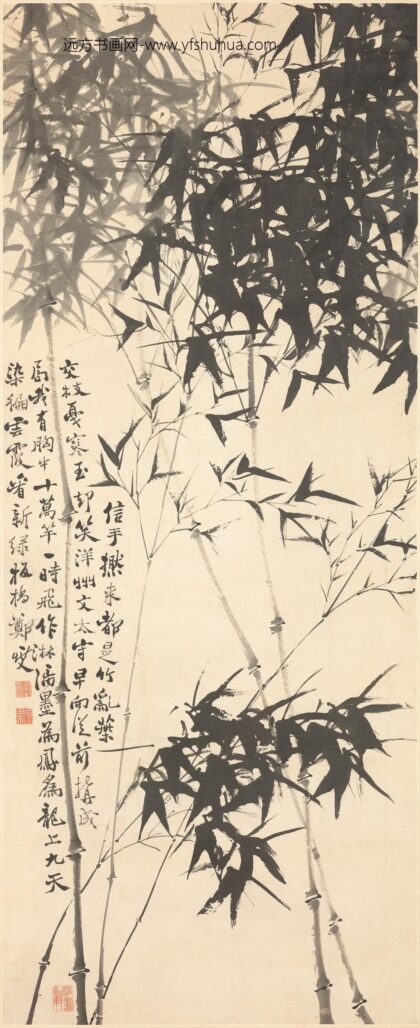 远方书画网-www.yfshuhua.com
信手撚來都是竹亂葉
交枝戛寒玉却笑洋州文太守早向從前構成
局我有胸中十萬竿一時飛作淋漓墨為鳳為龍上九天
染徧雲霞看新綠板橋鄭燮